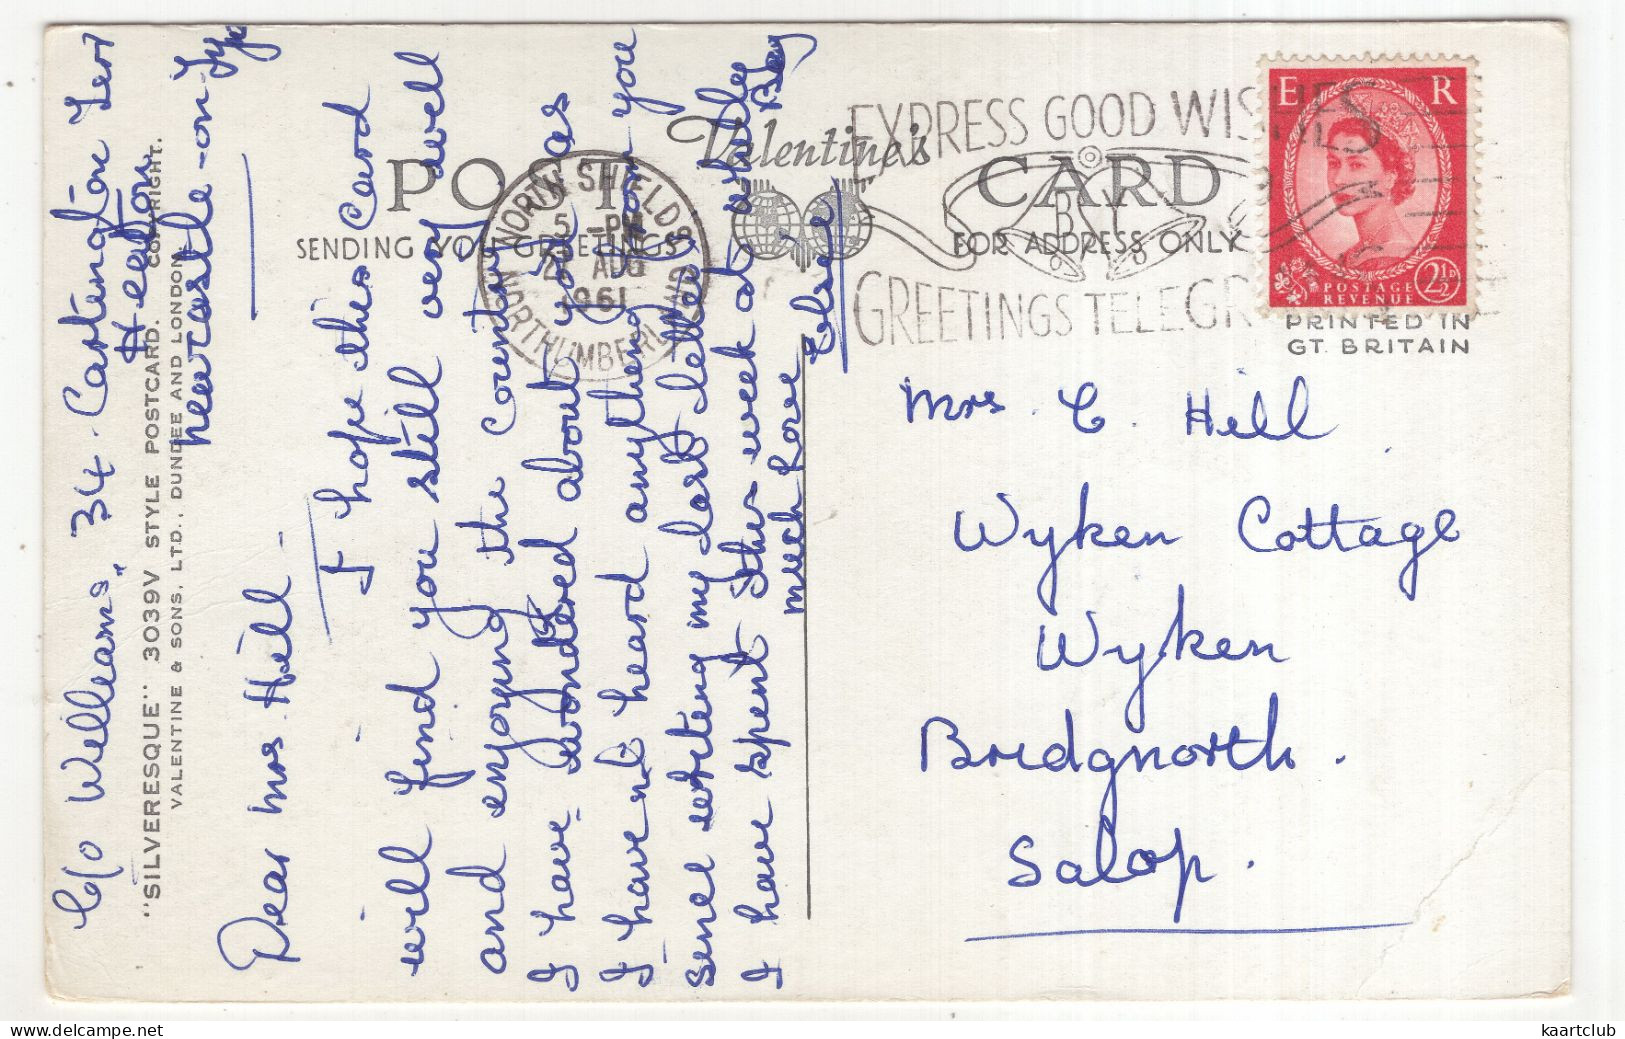 C/o Williams, 34. Cartington Terr
Heaton
Newcastle-on-Tyne
Dear Mrs. Hill -
I hope this card
will find you still very well
and enjoying the country.
I have wondered about you as
I haven't heard anything from you
since writing my last letter.
I have spent this week at Whitley Bay
Much Love
Elsie
"SILVERESQUE" 3039V STYLE POSTCARD. COPYRIGHT.
VALENTINE & SONS, LTD., DUNDEE AND LONDON.
POST CARD
Valentine's
SENDING YOU GREETINGS
FOR ADDRESS ONLY
NORTH SHIELDS
5 - PM
AUG
1961
NORTHUMBERLAND
EXPRESS GOOD WISHES
BY
GREETINGS TELEGR
E R
2½D
POSTAGE
REVENUE
PRINTED IN
GT. BRITAIN
Mrs. C. Hill
Wyken Cottage
Wyken
Bridgnorth.
Salop.
kaartclub